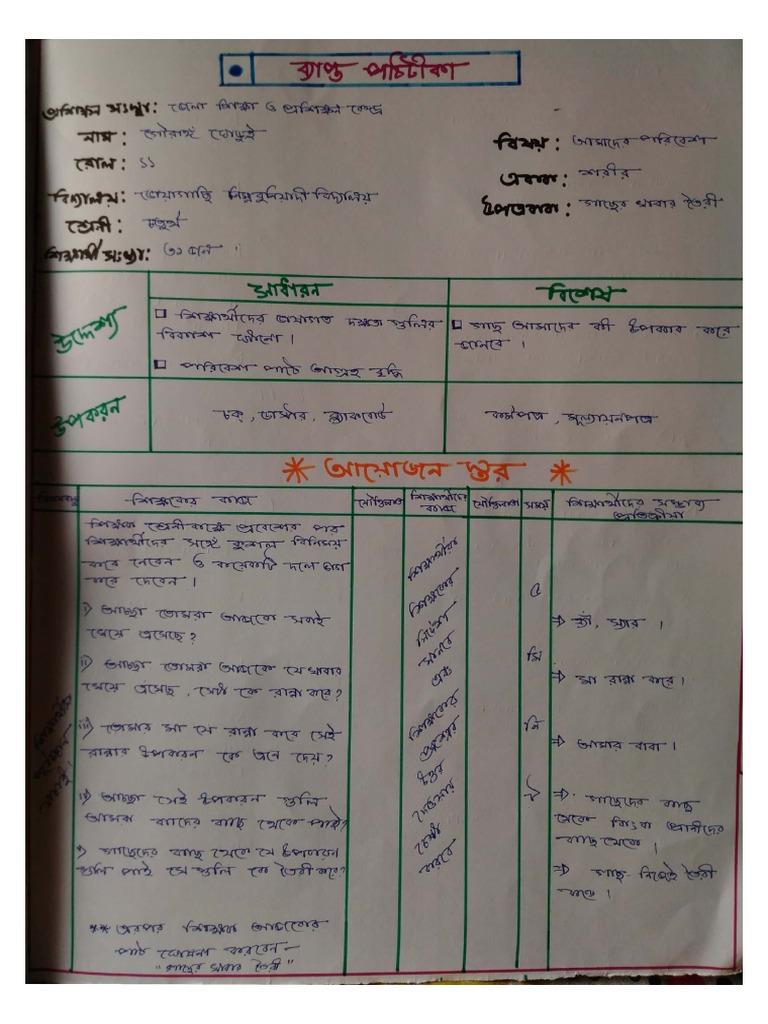 ব্যাপ্ত পাঠটীকা
প্রশিক্ষন সংস্থা: জেলা শিক্ষা ও প্রশিক্ষন কেন্দ্র
নাম:
রোল: ১১
বিদ্যালয়: নিম্নবুনিয়াদী বিদ্যালয়
শ্রেনী: চতুর্থ
শিক্ষার্থী সংখ্যা: ৩১ জন।
বিষয়: আমাদের পরিবেশ
একক: শরীর
উপএকক: গাছের খাবার তৈরী
সাধারন
বিশেষ
উদ্দেশ্য
শিক্ষার্থীদের ভাষাগত দক্ষতা গুলির
বিকাশ ঘটানো।
পরিবেশ পাঠে আগ্রহ বৃদ্ধি
গাছ আমাদের কী উপকার করে
জানবে।
উপকরন
চক, ডাস্টার, ব্ল্যাকবোর্ড
কর্মপত্র, মূল্যায়নপত্র
* আয়োজন স্তর *
শিক্ষকের কাজ
যৌক্তিকতা
শিক্ষার্থীদের কাজ
যৌক্তিকতা
সময়
শিক্ষার্থীদের সম্ভাব্য
প্রতিক্রিয়া
শিক্ষক শ্রেনীকক্ষে প্রবেশের পর
শিক্ষার্থীদের সঙ্গে কুশল বিনিময়
করে নেবেন ও কয়েকটি দলে ভাগ
করে দেবেন।
i) আচ্ছা তোমরা আজকে সবাই
খেয়ে এসেছে?
ii) আচ্ছা তোমরা আজকে যে খাবার
খেয়ে এসেছ, সেটা কে রান্না করে?
iii) তোমার মা যে রান্না করে সেই
রান্নার উপকরন কে এনে দেয়?
iv) আচ্ছা সেই উপকরন গুলি
আমরা কাদের কাছ থেকে পাই?
v) গাছেদের কাছ থেকে যে উপকরন
গুলি পাই সে গুলি কে তৈরী করে?
** এরপর শিক্ষক আজকের
পাঠ ঘোষনা করবেন -
"গাছের খাবার তৈরী"
শিক্ষার্থীরা
শিক্ষকের
নির্দেশ
মানবে
এবং
শিক্ষকের
প্রশ্নের
উত্তর
দেওয়ার
চেষ্টা
করবে
৫
মি
নি
ট
⇒ হ্যাঁ, স্যার।
⇒ মা রান্না করে।
⇒ আমার বাবা।
⇒ গাছেদের কাছ
থেকে কিংবা প্রানীদের
কাছ থেকে।
⇒ গাছ নিজেই তৈরী
করে।